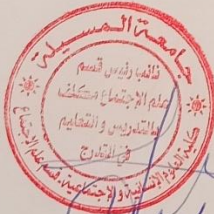 جامعة المسيلة
نائب رئيس قسم
علم الإجتماع مكلف
بالتدريس و التعليم
في التدرج
كلية العلوم الإنسانية والإجتماعية، قسم علم الإجتماع